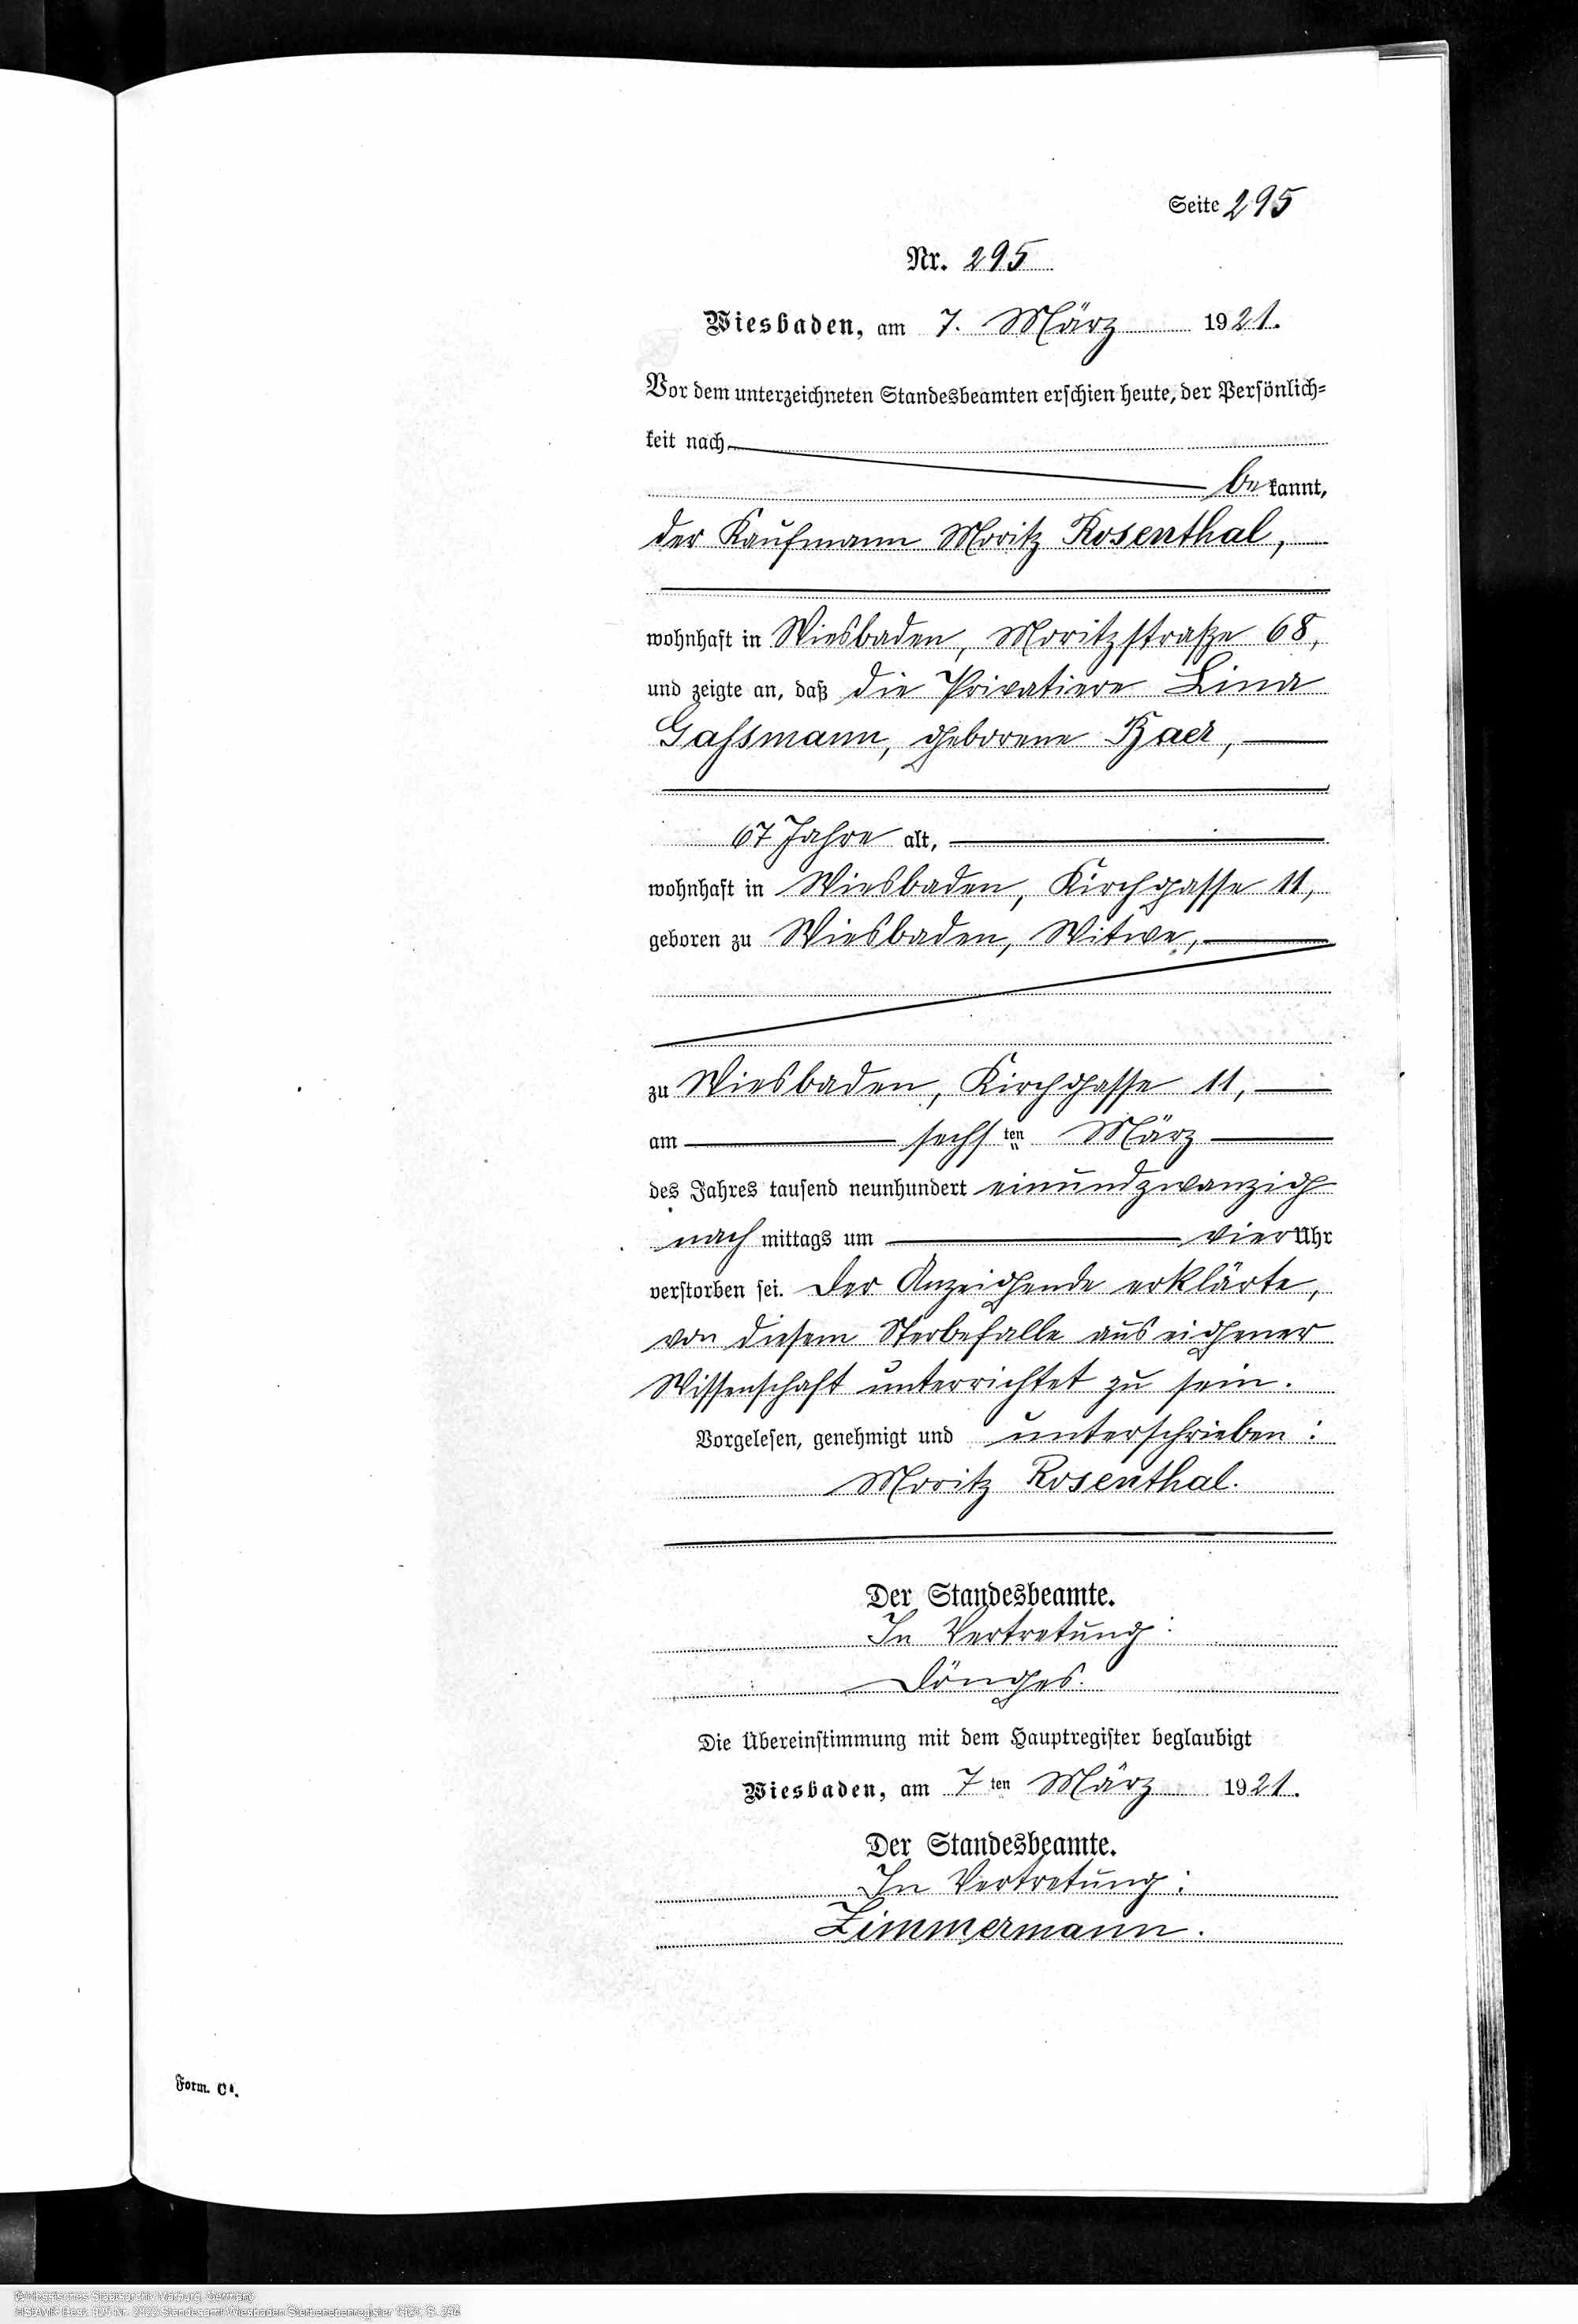 Seite 295
Nr. 295
Wiesbaden, am 7. März 1921.
Vor dem unterzeichneten Standesbeamten erschien heute, der Persönlich-
keit nach
be kannt,
der Kaufmann Moritz Rosenthal,
wohnhaft in Wiesbaden, Moritzstraße 68,
und zeigte an, daß die Privatiere Lina
Gassmann, geborene Baer,
67 Jahre alt,
wohnhaft in Wiesbaden, Kirchgasse 11,
geboren zu Wiesbaden, Witwe,
zu Wiesbaden, Kirchgasse 11,
am sechs ten März
des Jahres tausend neunhundert einundzwanzig
nach mittags um vier Uhr
verstorben sei. Der Anzeigende erklärte,
von diesem Sterbefalle aus eigener
Wissenschaft unterrichtet zu sein.
Vorgelesen, genehmigt und unterschrieben:
Moritz Rosenthal.
Der Standesbeamte.
In Vertretung:
Dönges.
Die Übereinstimmung mit dem Hauptregister beglaubigt
Wiesbaden, am 7 ten März 1921.
Der Standesbeamte.
In Vertretung:
Zimmermann.
Form. C¹.
Hessisches Staatsarchiv Marburg, Germany
HStAMR Best. 925 Nr. Standesamt Wiesbaden Sterbenebenregister 1921, S.